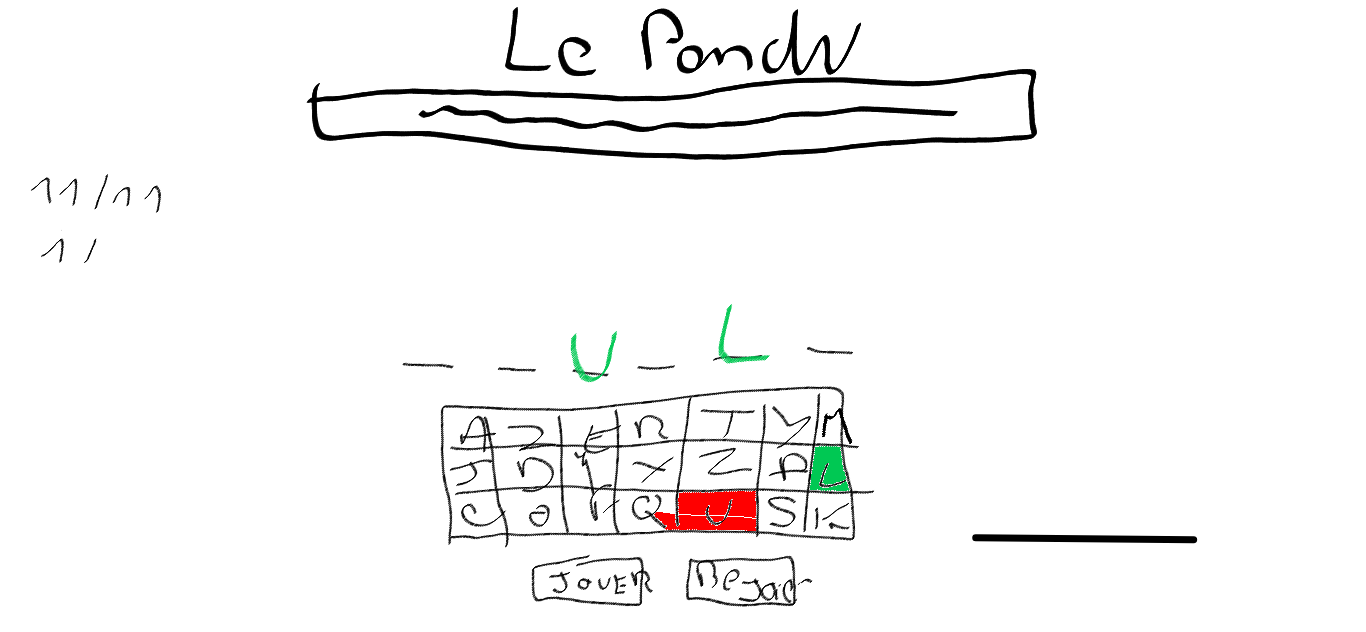 Le Pendu
11/11
1/
_ _ U _ L _
A Z E R T Y M
J D F X Z P L
C O F Q U S K
JOUER Rejouer